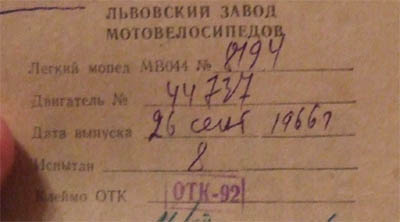 ЛЬВОВСКИЙ ЗАВОД
МОТОВЕЛОСИПЕДОВ
Легкий мопед МВ044 № 8194
Двигатель № 44737
Дата выпуска 26 сент 1966г
Испытан 8
Клеймо ОТК ОТК-92